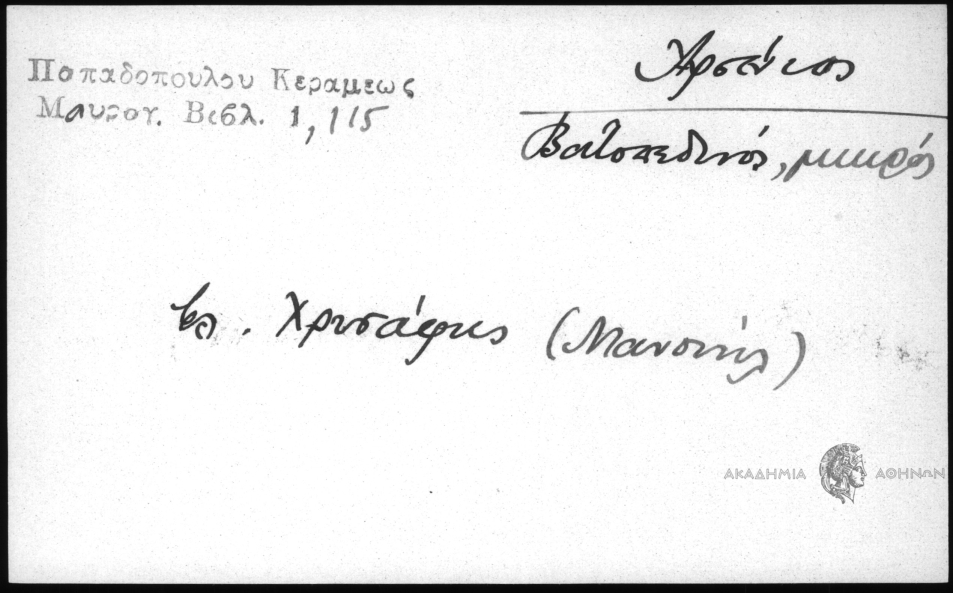 Παπαδοπουλου Κεραμεως
Μαυρογ. Βιβλ. 1, 115
Αρσένιος
Βατοπεδινός, μικρός
βλ. Χρυσάφης (Μανουήλ)
ΑΚΑΔΗΜΙΑ ΑΘΗΝΩΝ